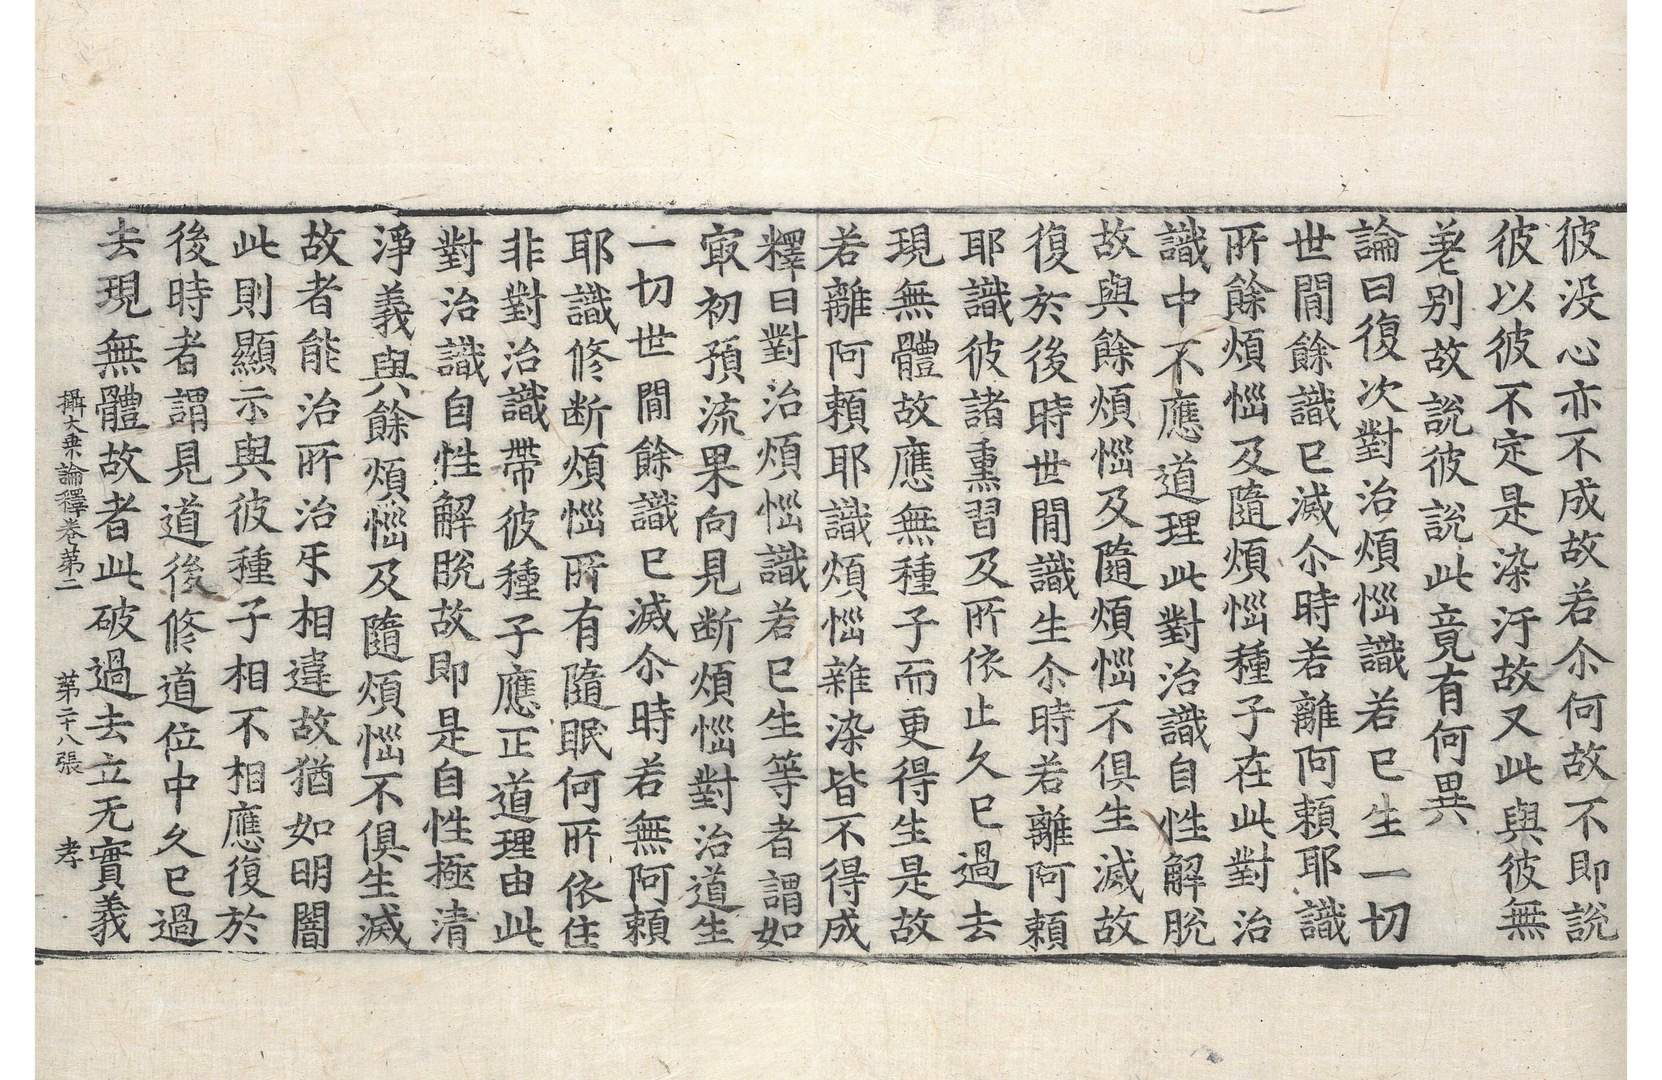 彼没心亦不成故若尒何故不即說
彼以彼不定是染汙故又此與彼無
差別故說彼說此竟有何異
論曰復次對治煩惱識若已生一切
世間餘識已滅尒時若離阿賴耶識
所餘煩惱及隨煩惱種子在此對治
識中不應道理此對治識自性解脫
故與餘煩惱及隨煩惱不俱生滅故
復於後時世間識生尒時若離阿賴
耶識彼諸熏習及所依止久已過去
現無體故應無種子而更得生是故
若離阿賴耶識煩惱雜染皆不得成
釋曰對治煩惱識若已生等者謂如
㝡初預流果向見断煩惱對治道生
一切世間餘識已滅尒時若無阿賴
耶識修断煩惱所有隨眠何所依住
非對治識帶彼種子應正道理由此
對治識自性解脫故即是自性極清
淨義與餘煩惱及隨煩惱不俱生滅
故者能治所治㸦相違故猶如明闇
此則顯示與彼種子相不相應復於
後時者謂見道後修道位中久已過
去現無體故者此破過去立无實義
攝大乗論釋卷第二　第二十八張　孝